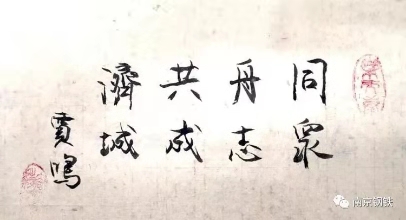 同舟共濟
眾志成城
賈鳴
南京钢铁